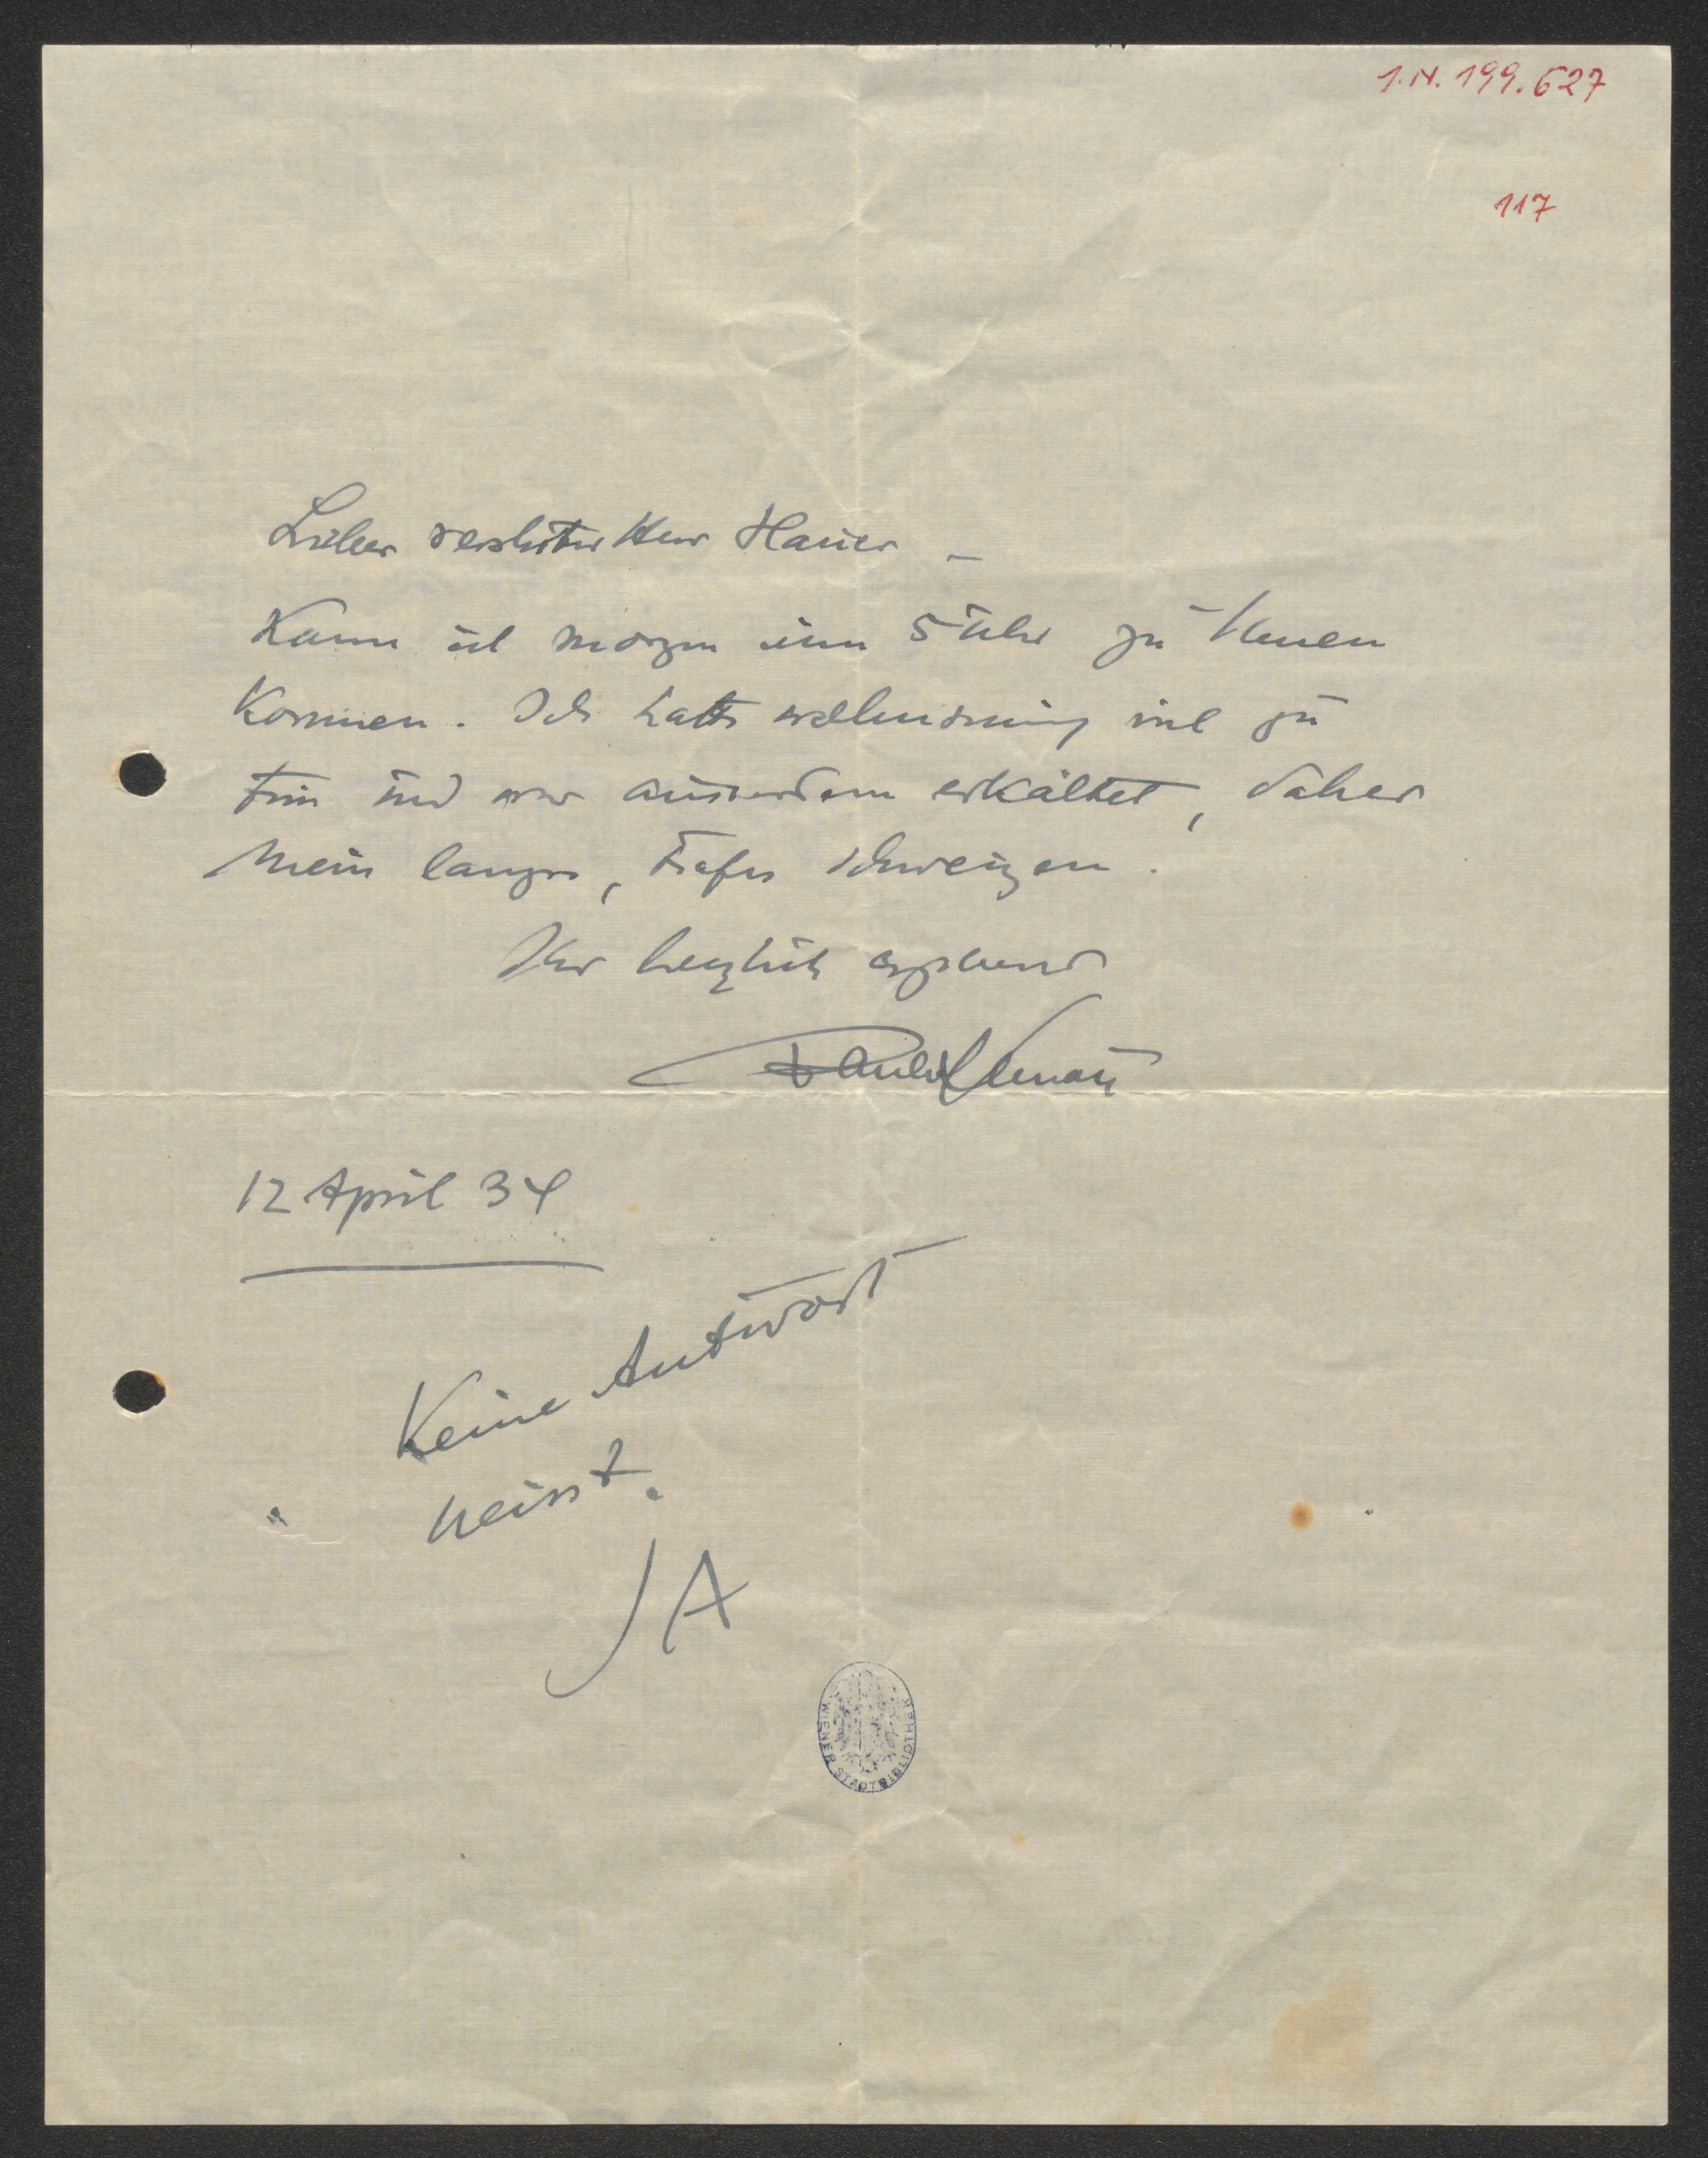 I.N. 199.627
117
Lieber verehrter Herr Hauer –
Kann ich morgen um 5 Uhr zu Ihnen
kommen. Ich hatte wahnsinnig viel zu
tun und war ausserdem erkältet, daher
mein langes, tiefes Schweigen.
Ihr herzlich ergebener
12 April 34
Keine Antwort
heisst.
JA
WIENER STADTBIBLIOTHEK